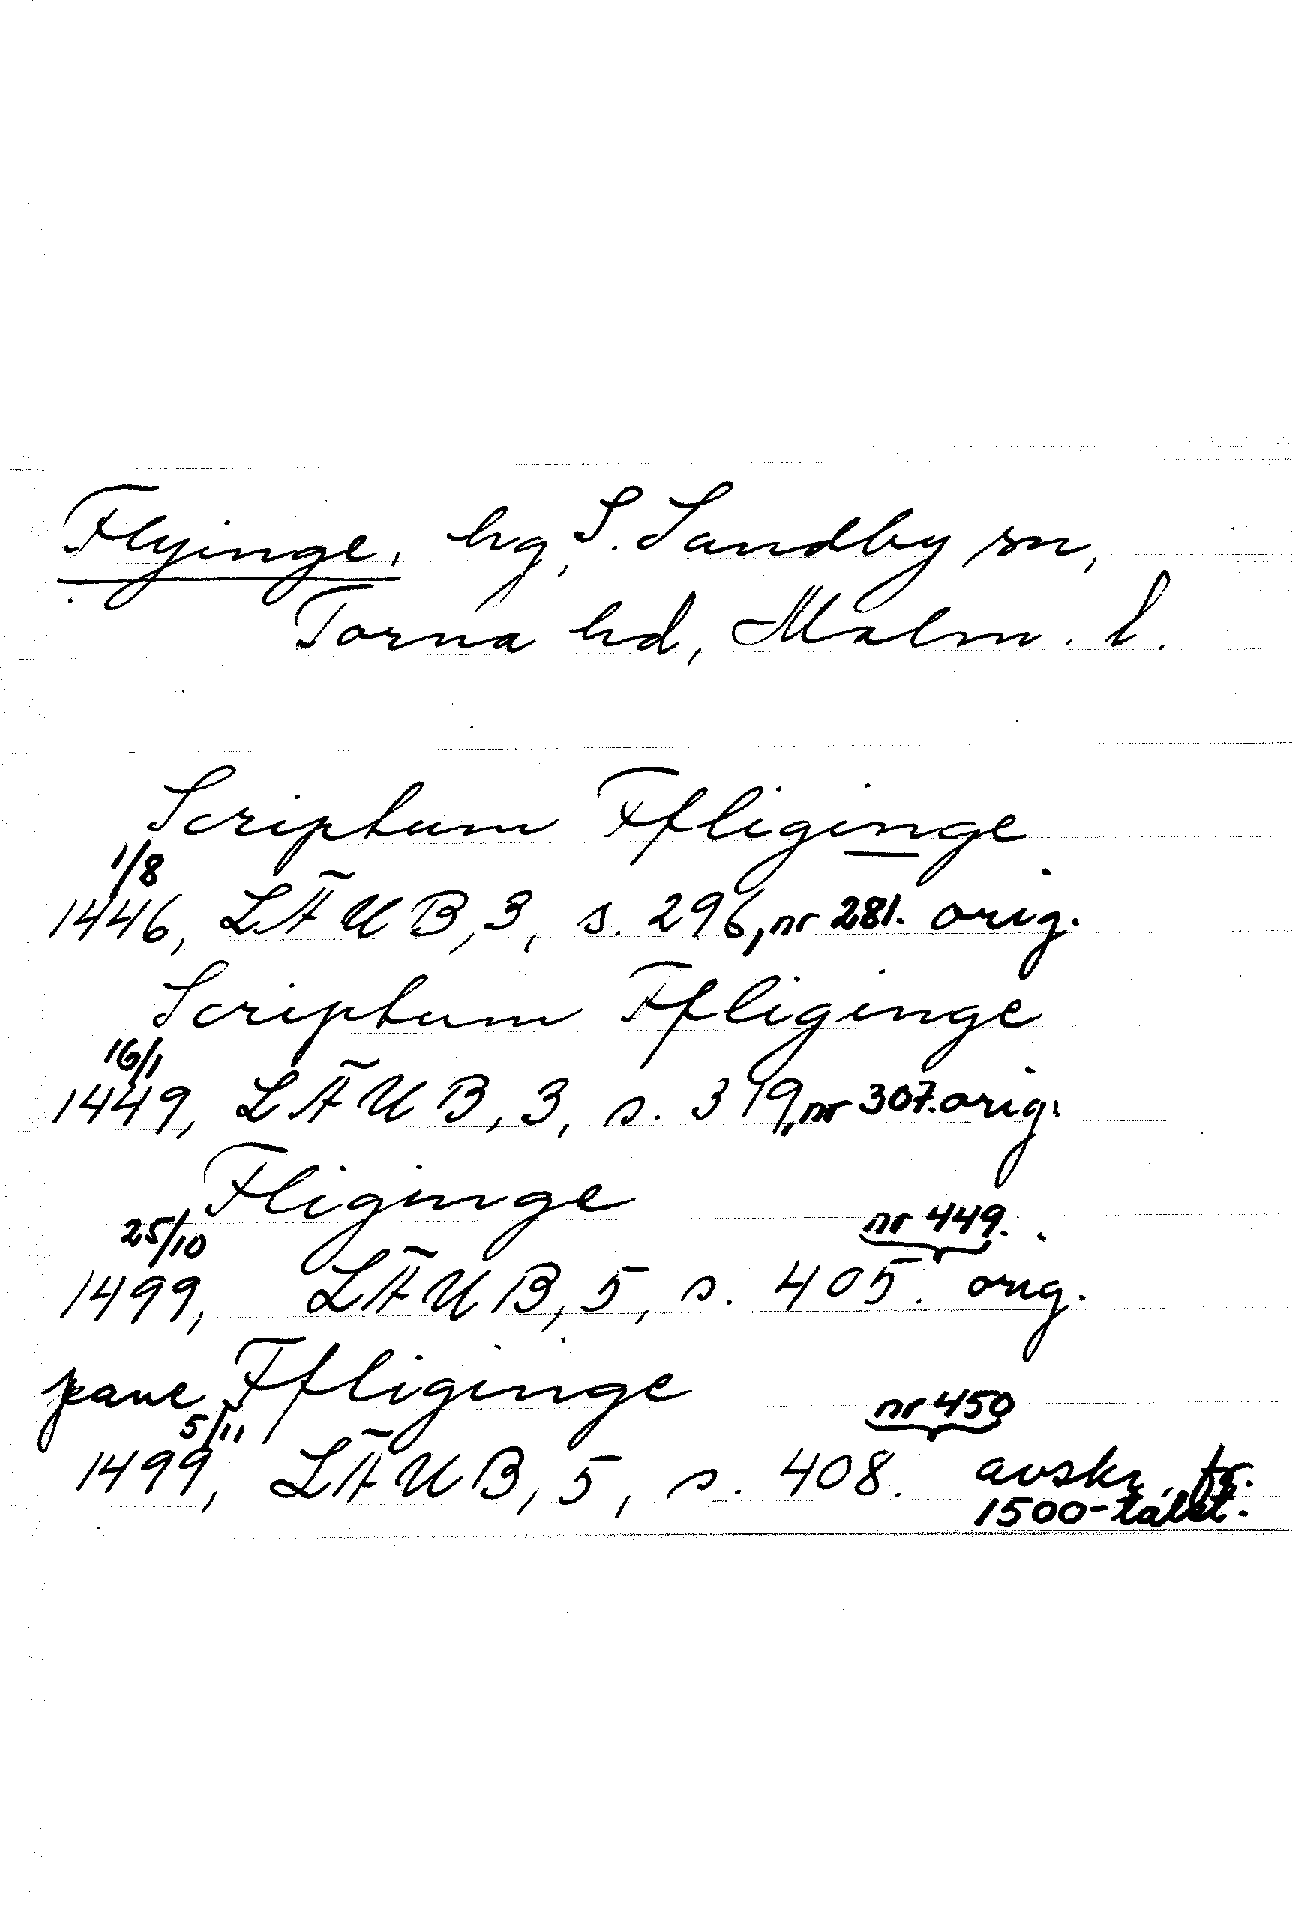 Flyinge, hg, S. Sandby sn,
Torna hd, Malm. l.
Scriptum Ffliginge
1/8
1446, LÄUB, 3, s. 296, nr 281. orig.
Scriptum Ffliginge
16/1
1449, LÄUB, 3, s. 319, nr 307. orig.
Fliginge
25/10 nr 449.
1499, LÄUB, 5, s. 405. orig.
Ffliginge
5/11 nr 450
1499, LÄUB, 5, s. 408. avskr. fr.
1500-talet.